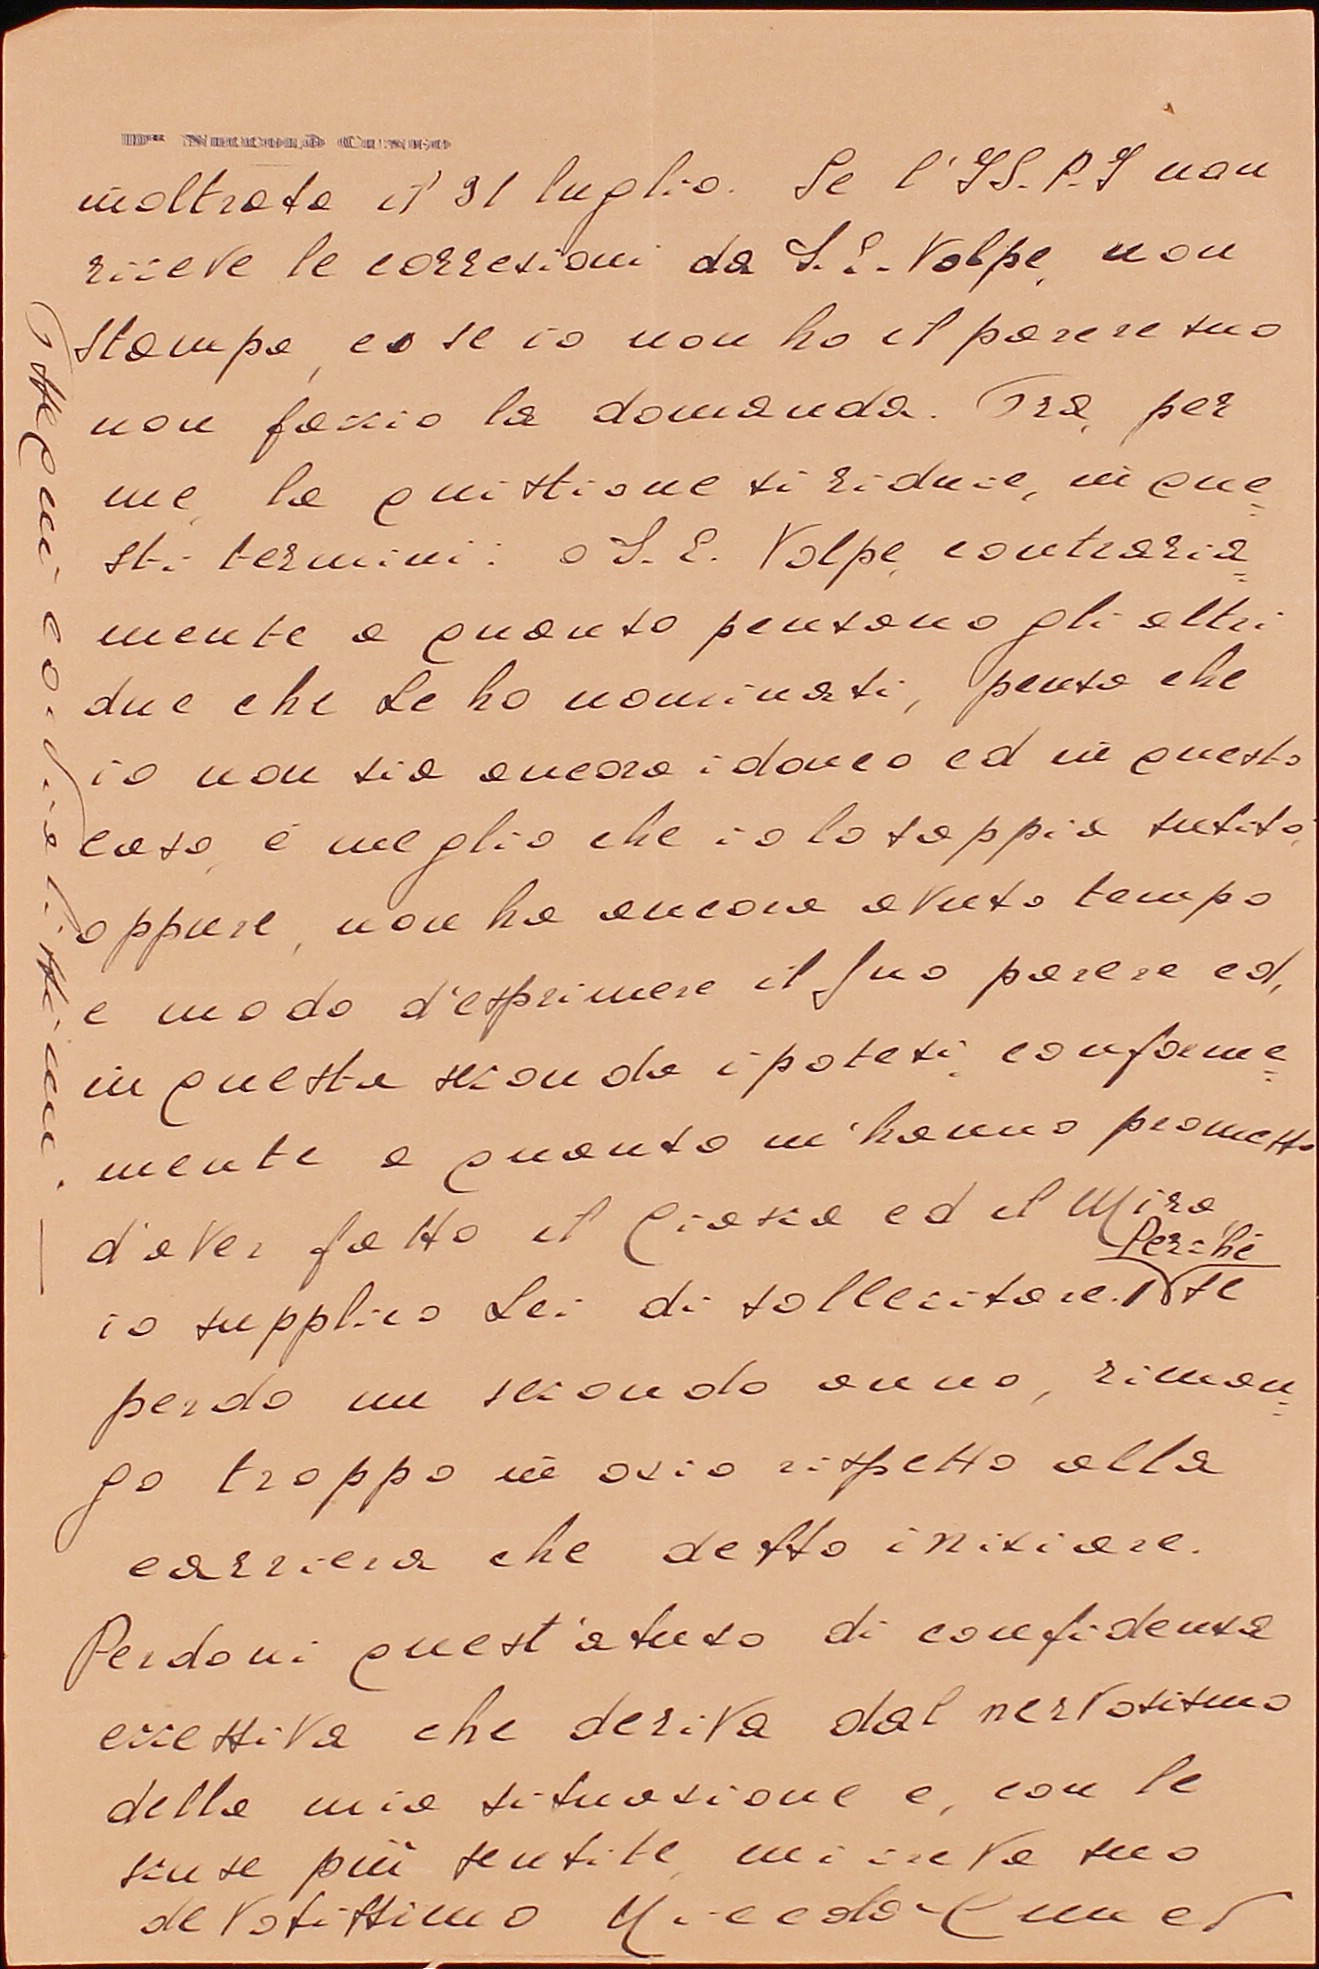 Dr. Niccolò Cuneo
inoltrata il 31 luglio. Se l'I S. P. I non
riceve le correzioni da S. E. Volpe, non
stampa, e se io non ho il parere suo
non faccio la domanda. Ora, per
me, la quistione si riduce, in que=
sti termini: o S. E. Volpe, contraria=
mente a quanto pensano gli altri
due che Le ho nominati, pensa che
io non sia ancora idoneo ed in questo
caso, è meglio che io lo sappia subito;
oppure, non ha ancora avuto tempo
e modo d'esprimere il Suo parere ed,
in questa seconda ipotesi, conforme=
mente a quanto m'hanno promesso
d'aver fatto il ed il
io supplico Lei di sollecitare. Perchè se
perdo un secondo anno, riman=
go troppo in ozio rispetto alla
carriera che debbo iniziare.
Perdoni quest'abuso di confidenza
eccessiva che deriva dal nervosismo
della mia situazione e, con le
scuse più sentite, mi creda suo
devotissimo Niccolò Cuneo
Ossequi cordialissimi. —